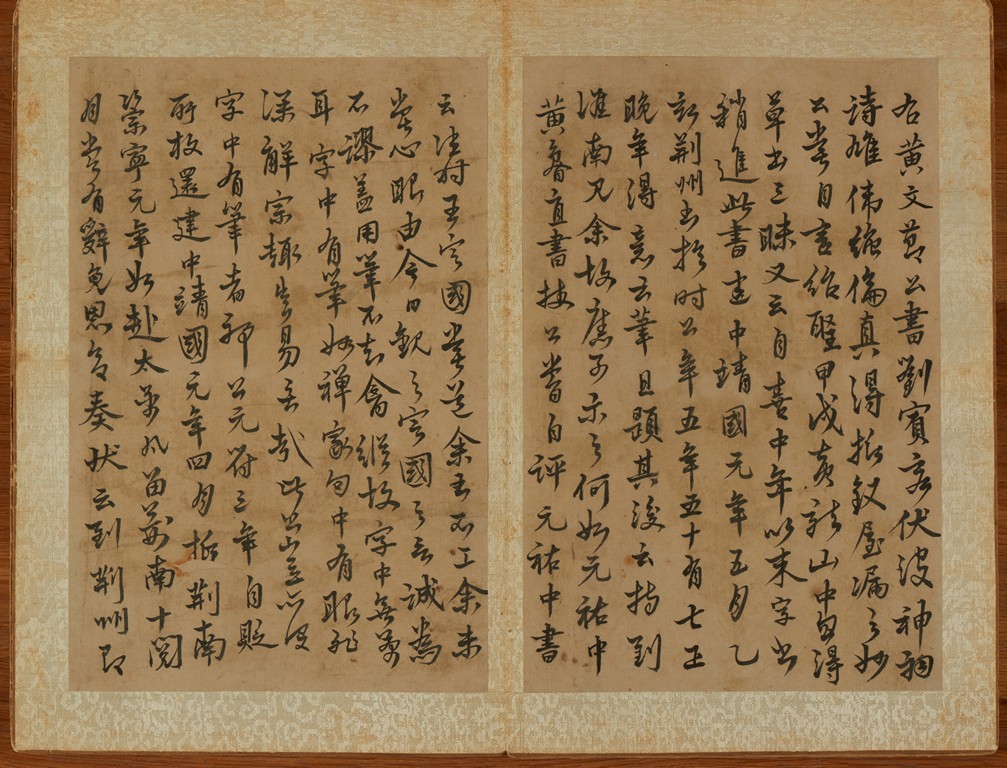 右黃文節公書劉賓客伏波神祠
詩雄偉絕倫真得折釵屋漏之妙
公嘗自言紹聖甲戌黃龍山中忽得
草書三昧又云自喜中年以來字書
稍進此書建中靖國元年五月乙
亥荆州書於時公年五十有七正
晚年得意之筆且題其後云持到
淮南見余故舊可示之何如元祐中
黃魯直書接公嘗自評元祐中書
云往時王定國嘗道余書不工余未
嘗心服由今日觀之定國之言誠為
不謬蓋用筆不知禽縱故字中無筆
耳字中有筆如禪家句中有眼非
深解宗趣豈易言哉此書豈所謂
字中有筆者邪公元符三年自貶
所放還建中靖國元年四月抵荆南
崇寧元年始赴太平凡留荆南十閱
月嘗有辭免恩命奏狀云到荆州即